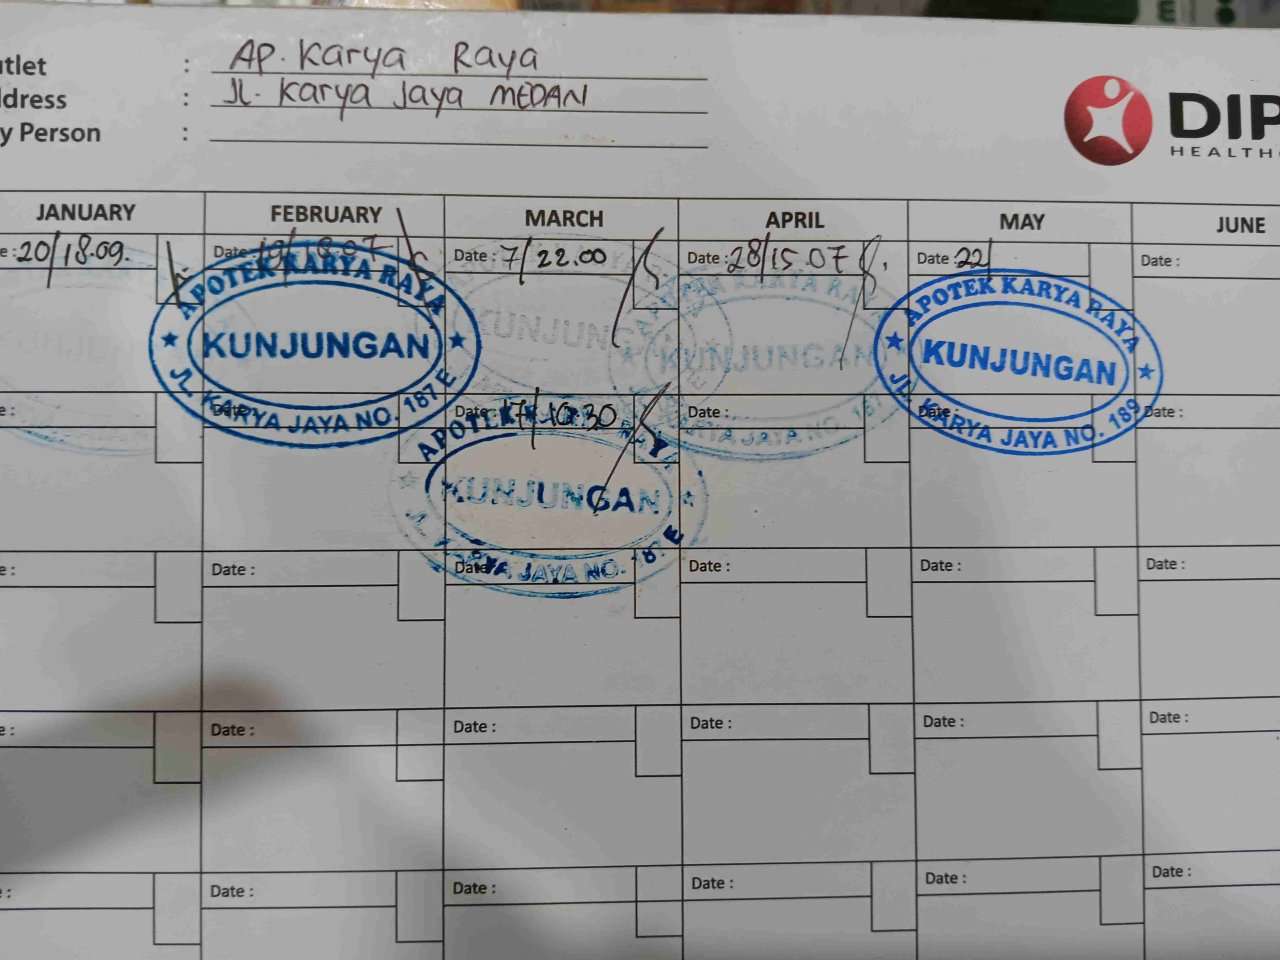 utlet : Ap. Karya Raya
ddress : Jl. Karya Jaya MEDAN
y Person :
DIP
HEALTHC
JANUARY FEBRUARY MARCH APRIL MAY JUNE
e : 20/18.09. Date : 19/18.07 Date : 7/22.00 Date : 28/15.07 Date : 22/ Date :
APOTEK KARYA RAYA
KUNJUNGAN
JL. KARYA JAYA NO. 187 E
KUNJUNGAN
KARYA RAYA
KUNJUNGAN
KARYA JAYA 187
APOTEK KARYA RAYA
KUNJUNGAN
JL. KARYA JAYA NO. 189
e : Date : Date : 17/10.30 Date : Date : Date :
APOTEK
KUNJUNGAN
JL. KARYA JAYA NO. 187 E
e : Date : Date : Date : Date : Date :
e : Date : Date : Date : Date : Date :
: Date : Date : Date : Date : Date :